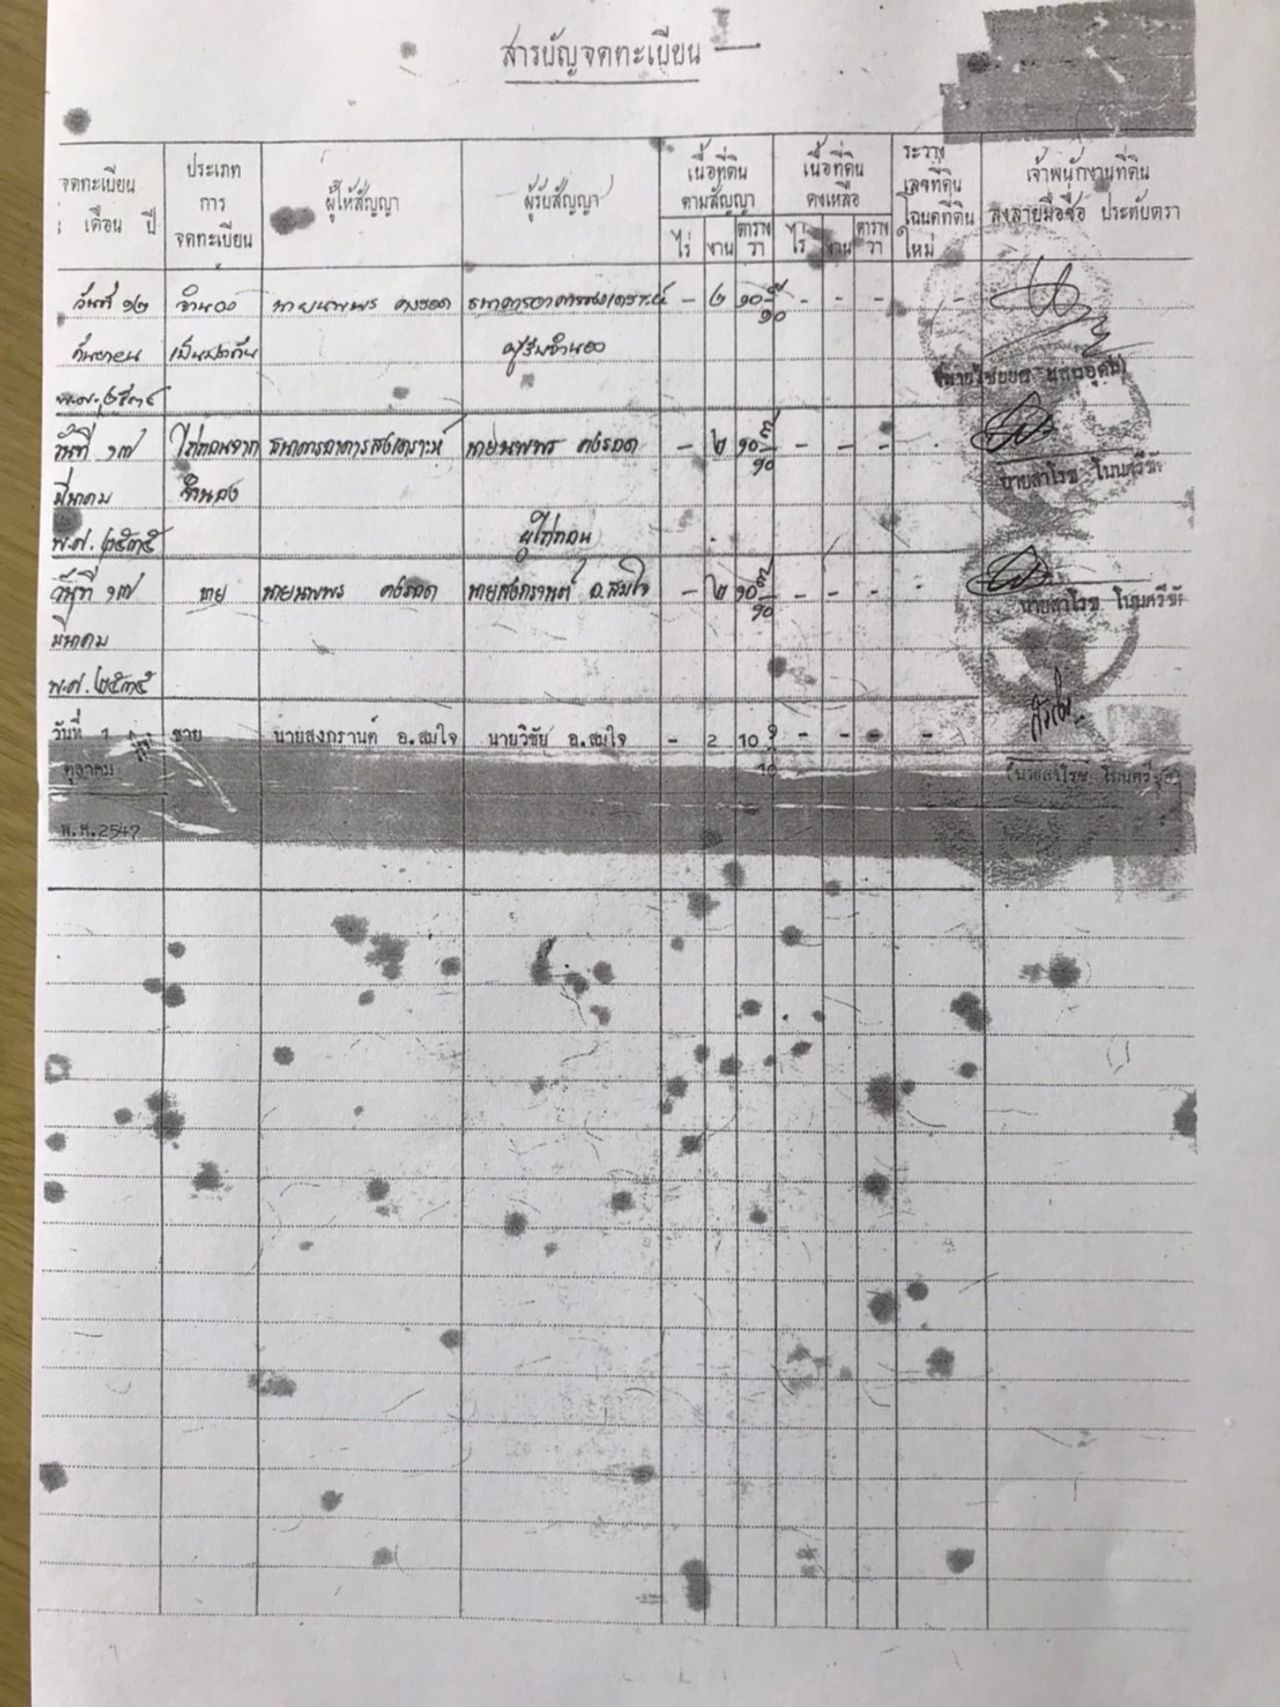 สารบัญจดทะเบียน
จดทะเบียน
เดือน ปี
ประเภท
การ
จดทะเบียน
ผู้ให้สัญญา
ผู้รับสัญญา
เนื้อที่ดิน
ตามสัญญา
ไร่ งาน ตาราง
วา
เนื้อที่ดิน
คงเหลือ
ไร่ งาน ตาราง
วา
ระวาง
เลขที่ดิน
โฉนดที่ดิน
ใหม่
เจ้าพนักงานที่ดิน
ลงลายมือชื่อ ประทับตรา
วันที่ ๑๒ จำนอง นายนพพร คงรอด ธนาคารอาคารสงเคราะห์ - ๒ ๑๐ - - - -
กันยายน เป็นประกัน ผู้รับจำนอง
พ.ศ.
วันที่ ๑๗ ไถ่ถอนจาก ธนาคารอาคารสงเคราะห์ นายนพพร คงรอด - ๒ ๑๐ ๓/๑๐ - - -
มีนาคม จำนอง
นายสาโรช
พ.ศ. ๒๕๓๕ ผู้ไถ่ถอน
วันที่ ๑๗ ขาย นายนพพร คงรอด นายสงกรานต์ อ.สมใจ - ๒ ๑๐ ๓/๑๐ - - - -
นายสาโรช
มีนาคม
พ.ศ. ๒๕๓๕
วันที่ 1 ขาย นายสงกรานต์ อ.สมใจ นายวิชัย อ.สมใจ - 2 10 - - - -
ตุลาคม 10 (นายสาโรช
พ.ศ.2547